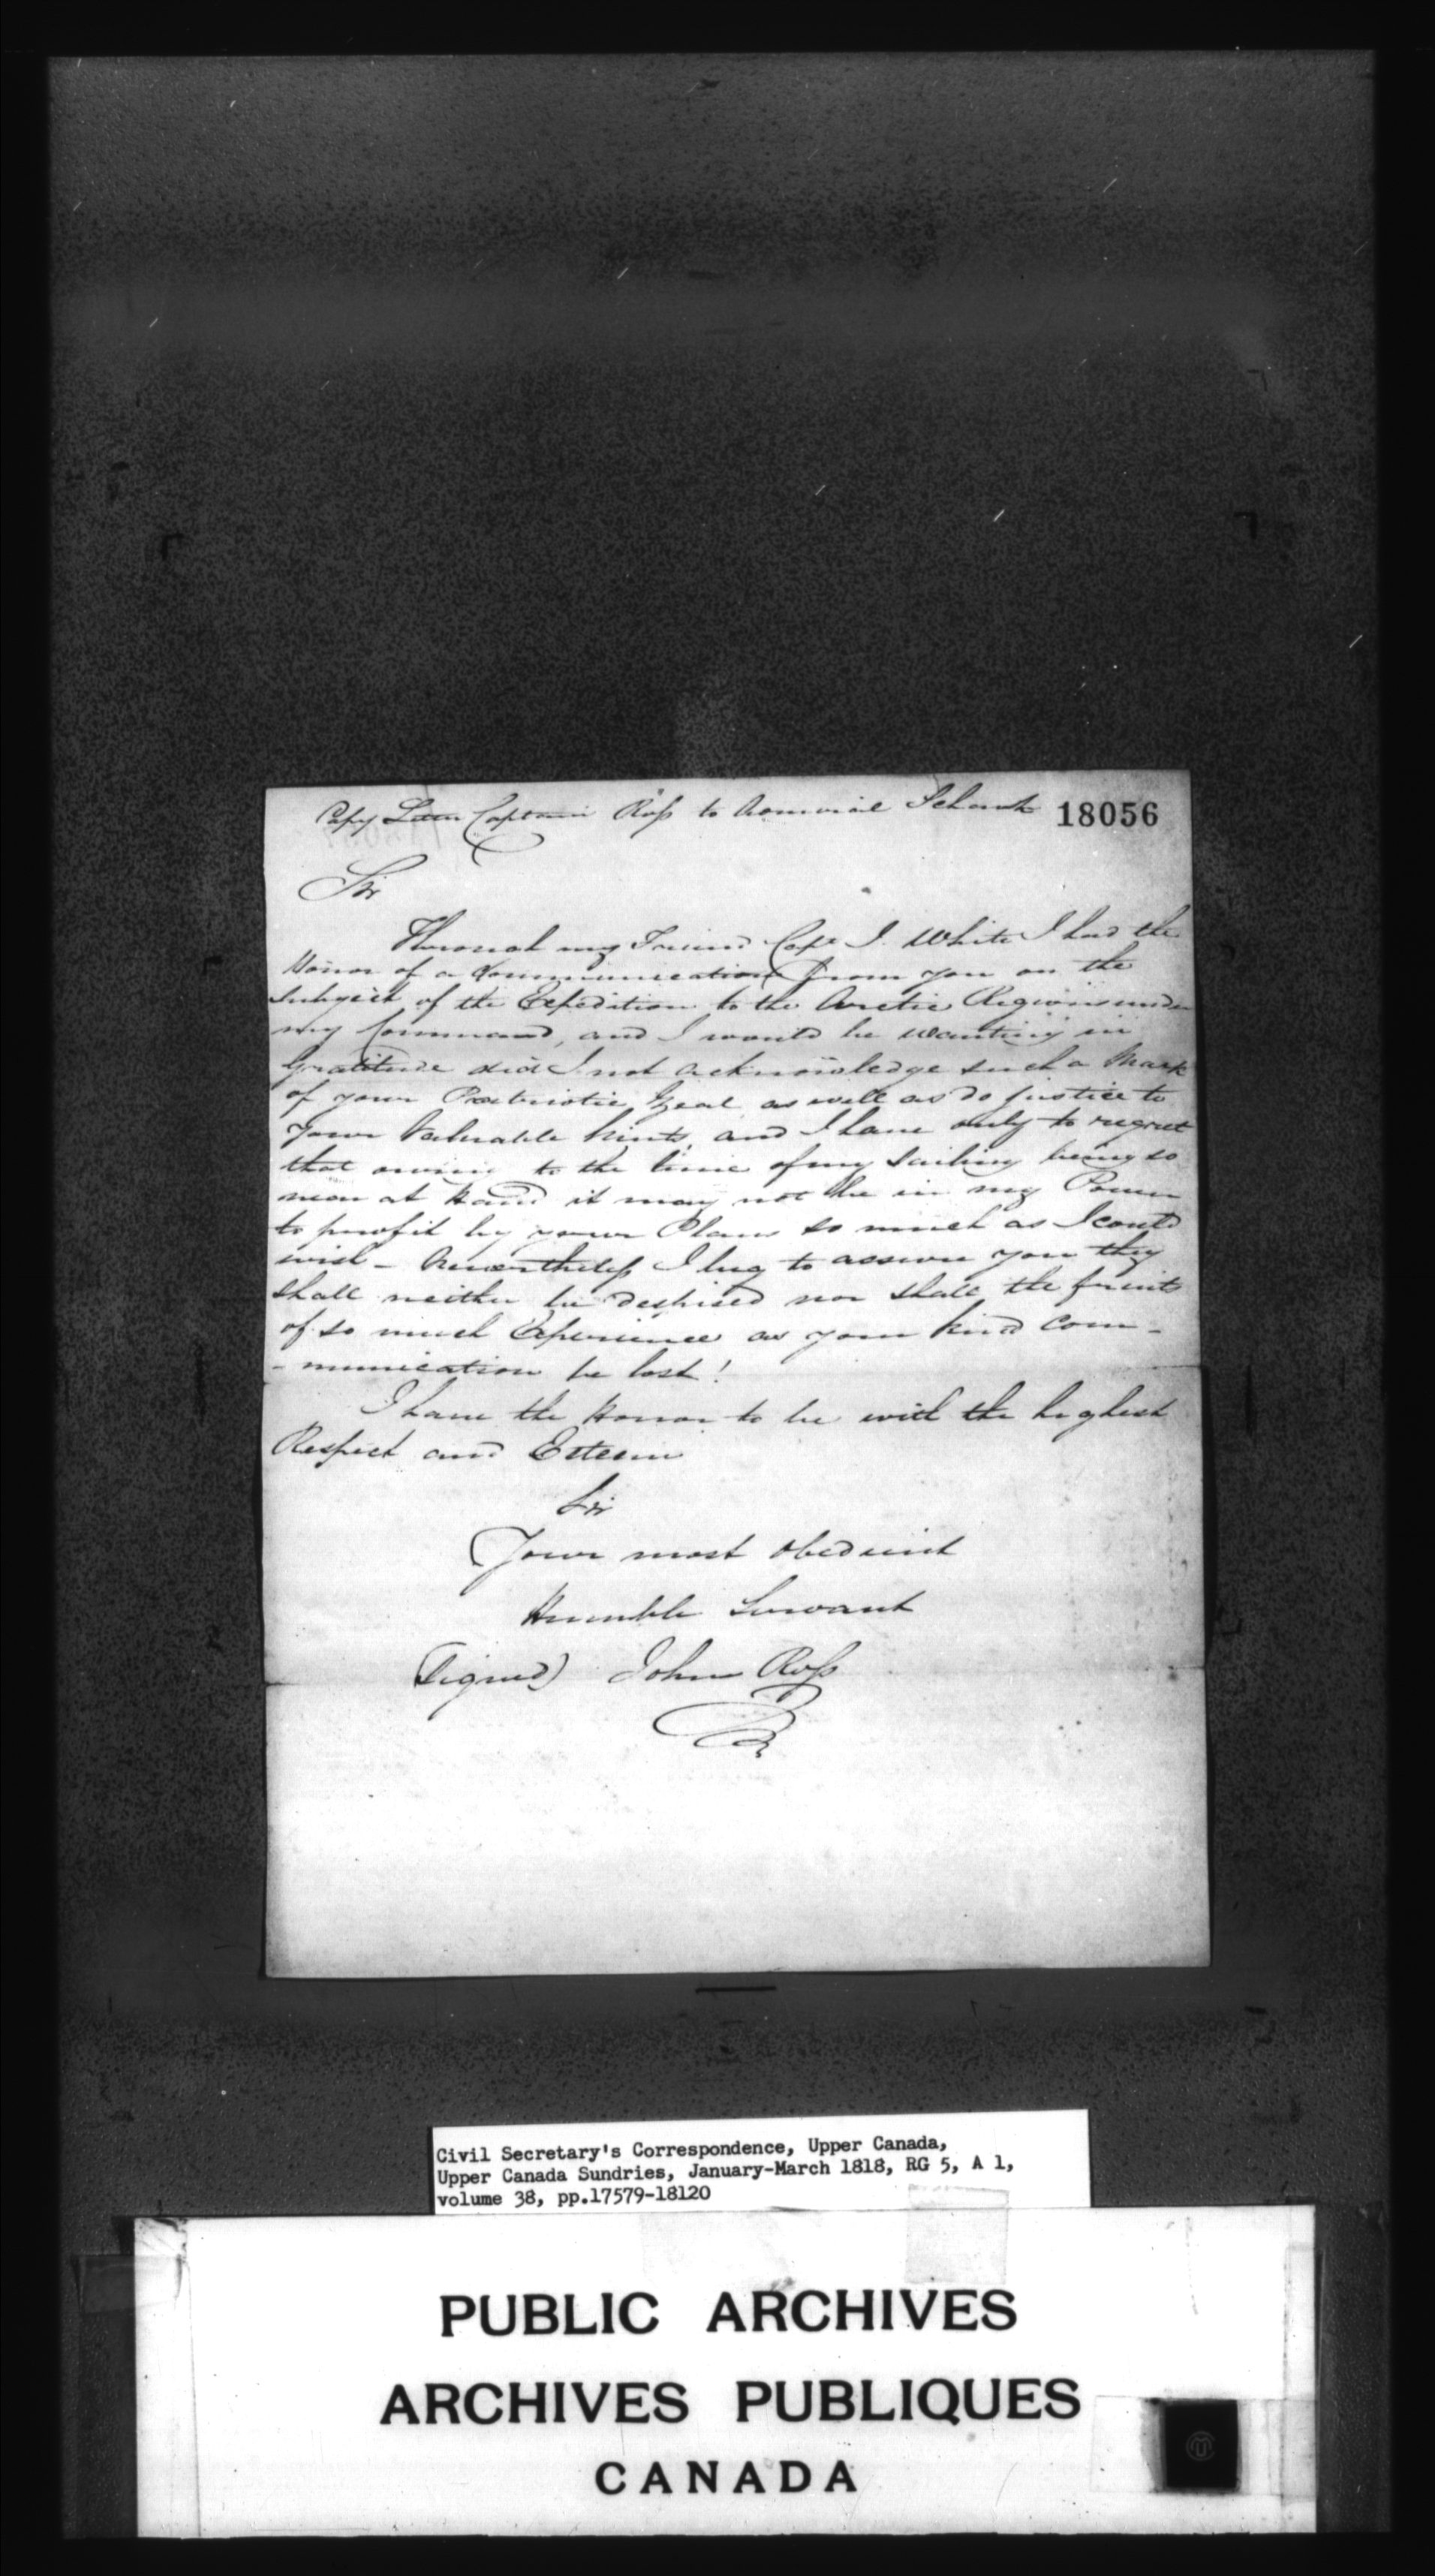 Copy Letter Captain Ross to Admiral Schank 18056
Sir
Through my Friend Capt. J. White I had the
Honor of a Communication from you on the
Subject of the Expedition to the Arctic Regions under
my Command, and I would be wanting in
Gratitude did I not acknowledge such a Mark
of your Patriotic Zeal as well as do justice to
Your Valuable hints, and I have only to regret
that owing to the time of my Sailing being so
near at Hand it may not be in my Power
to profit by your Plans so much as I could
wish - Nevertheless I beg to assure you they
shall neither be despised nor shall the fruits
of so much Experience as your kind Com-
-munication be lost!
I have the Honor to be with the highest
Respect and Esteem
Sir
Your most obedient
Humble Servant
(Signed) John Ross
Civil Secretary's Correspondence, Upper Canada,
Upper Canada Sundries, January-March 1818, RG 5, A 1,
volume 38, pp.17579-18120
PUBLIC ARCHIVES
ARCHIVES PUBLIQUES
CANADA